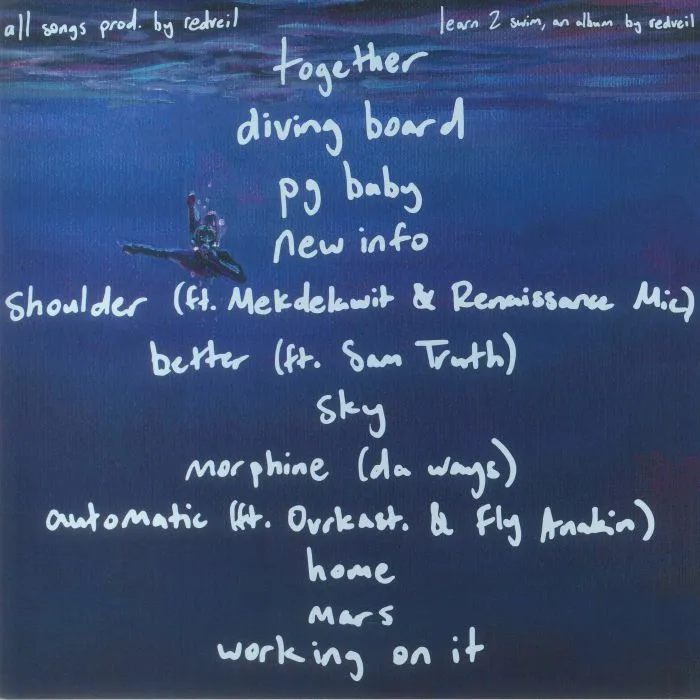 all songs prod. by redveil
learn 2 swim, an album by redveil
together
diving board
pg baby
new info
shoulder (ft. Mekdelawit & Renaissance Mic)
better (ft. Sam Truth)
sky
morphine (da ways)
automatic (ft. Ovrkast. & Fly Anakin)
home
mars
working on it